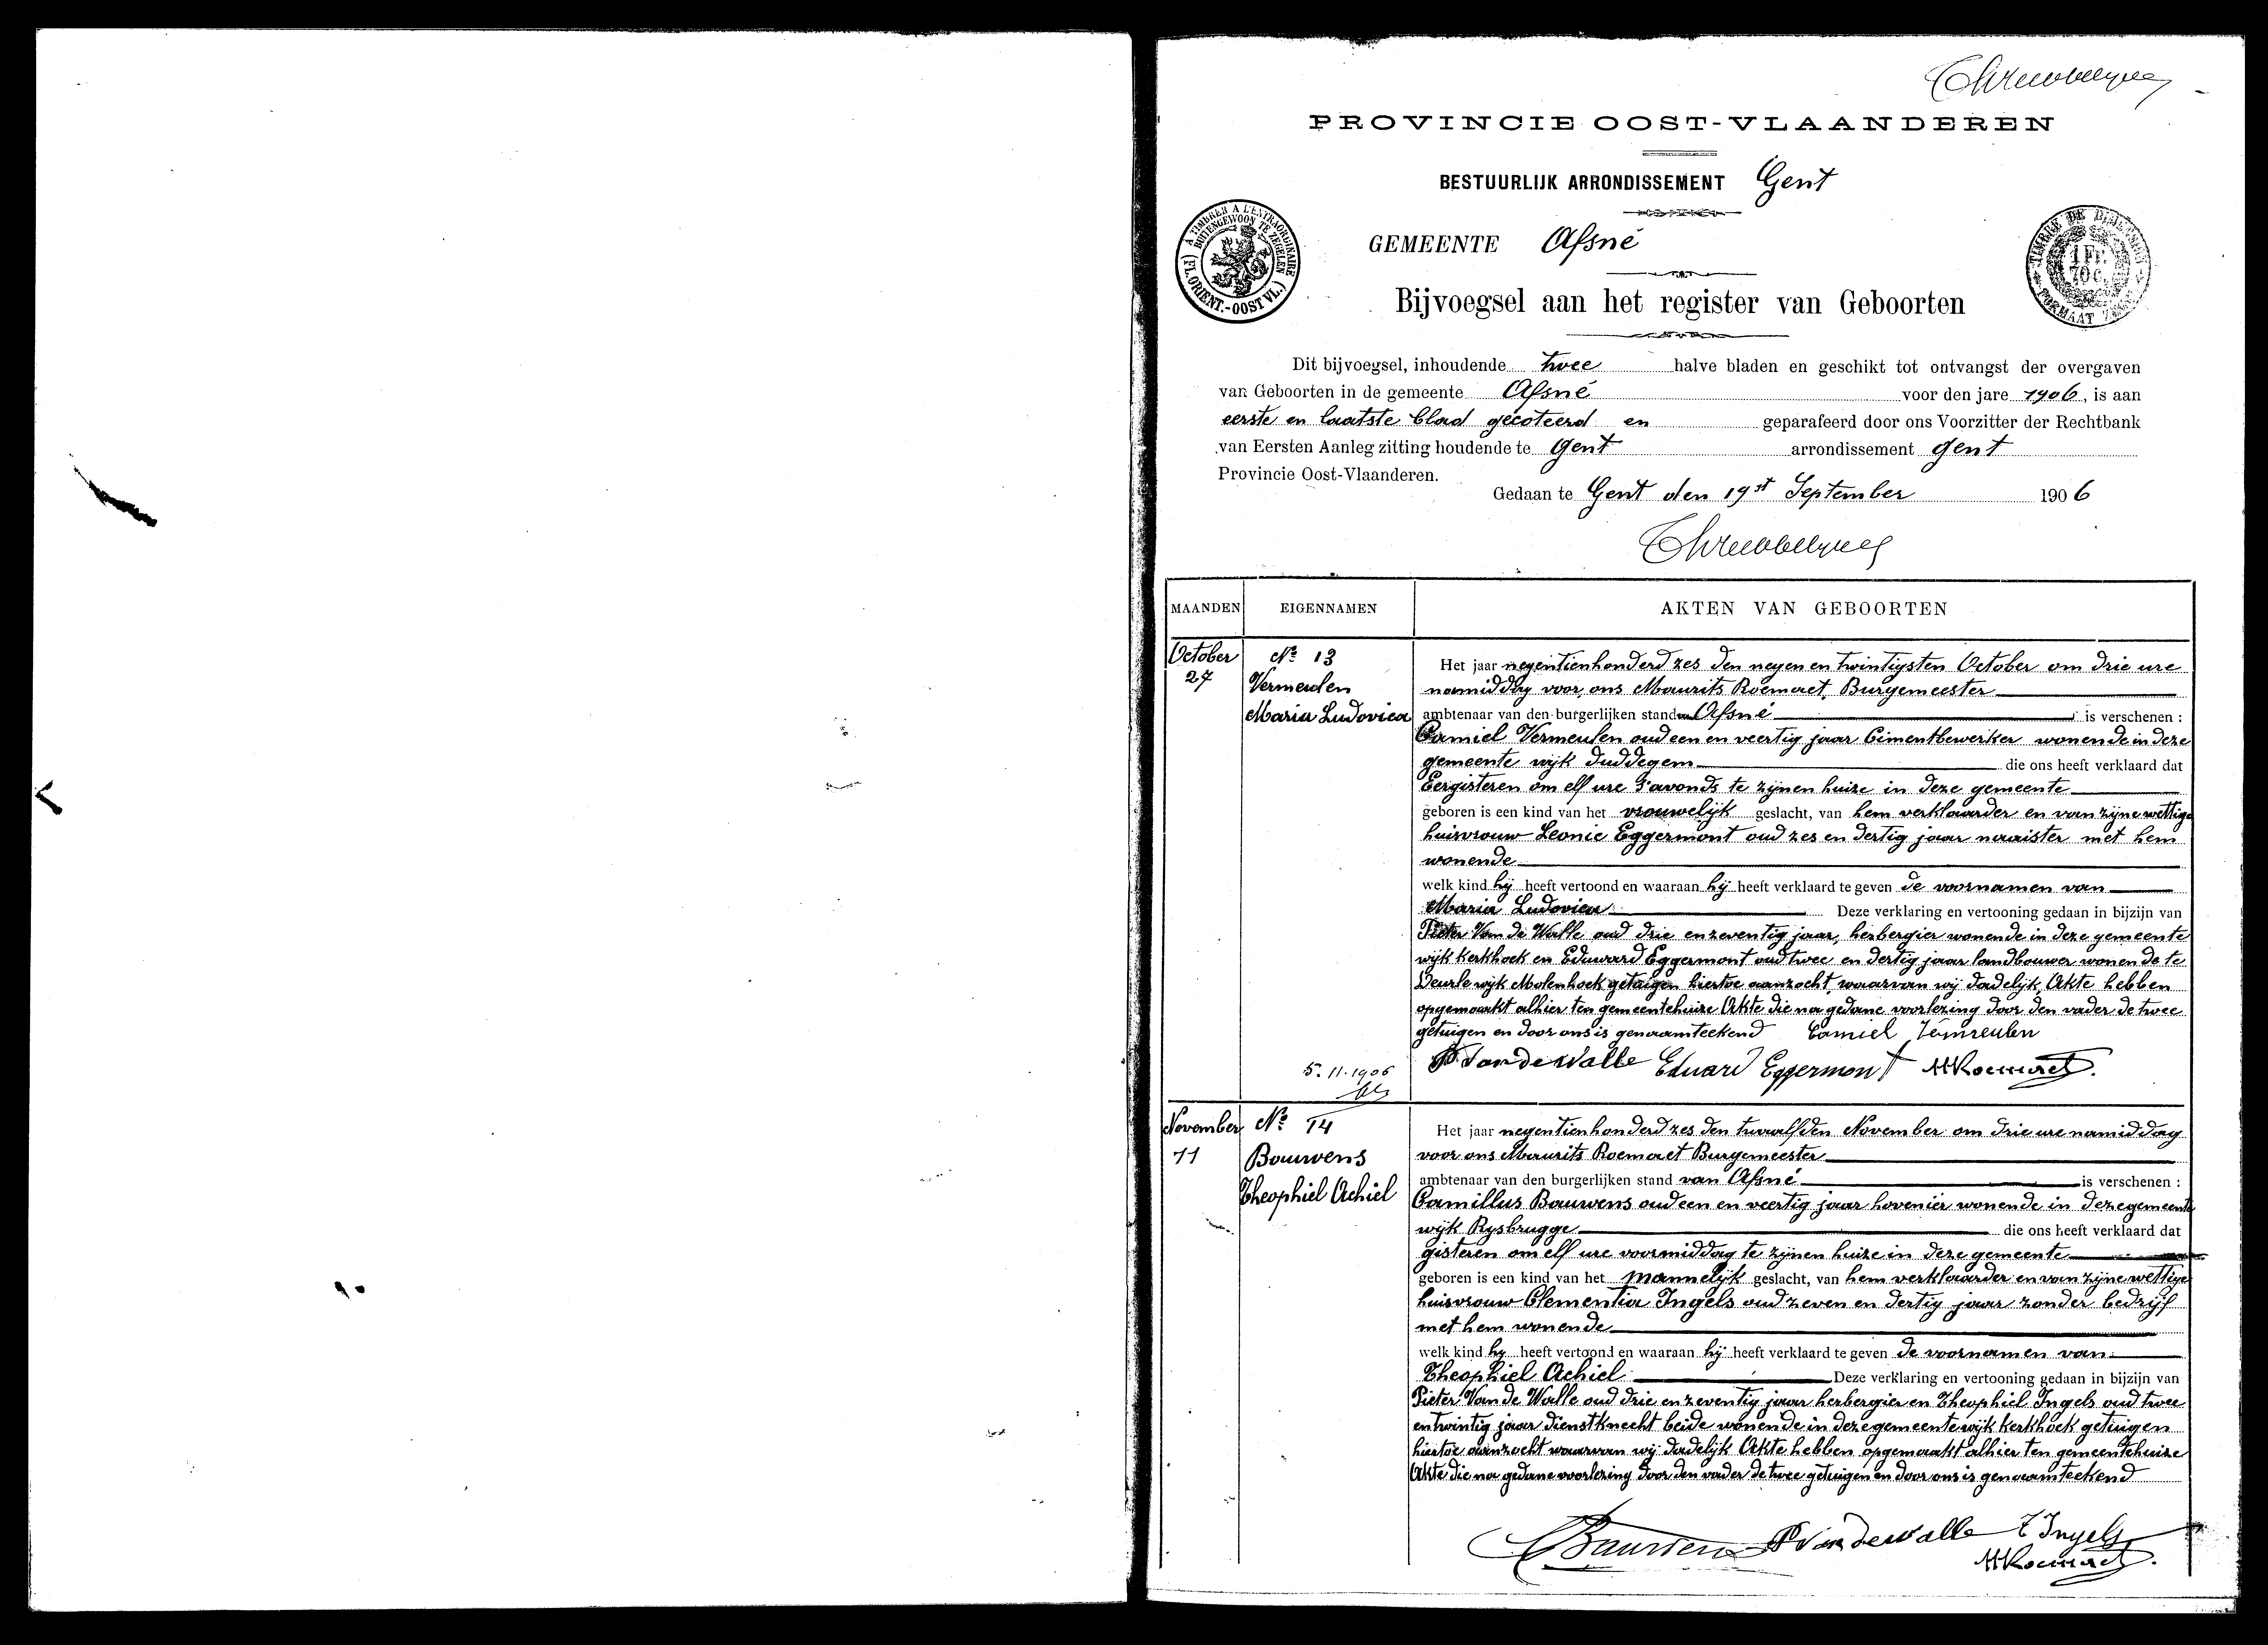 PROVINCIE OOST-VLAANDEREN
BESTUURLIJK ARRONDISSEMENT Gent
A TIMBRER A L'EXTRAORDINAIRE
BUITENGEWOON TE ZEGELEN
(FL. ORIENT.-OOST VL.)
TIMBRE DE DIMENSION
1 Fr.
70 C.
FORMAAT
GEMEENTE Afsné
Bijvoegsel aan het register van Geboorten
Dit bijvoegsel, inhoudende twee halve bladen en geschikt tot ontvangst der overgaven
van Geboorten in de gemeente Afsné voor den jare 1906, is aan
eerste en laatste blad gecoteerd en geparafeerd door ons Voorzitter der Rechtbank
van Eersten Aanleg zitting houdende te Gent arrondissement Gent
Provincie Oost-Vlaanderen.
Gedaan te Gent den 19st September 1906
MAANDEN EIGENNAMEN AKTEN VAN GEBOORTEN
October
27
Nr 13
Vermeulen
Maria Ludovica
Het jaar negentienhonderd zes den negen en twintigsten October om drie ure
namiddag voor ons Maurits Roemaet, Burgemeester
ambtenaar van den burgerlijken stand van Afsné is verschenen :
Camiel Vermeulen oud een en veertig jaar Cimentbewerker wonende in deze
gemeente wijk Duddegem die ons heeft verklaard dat
Eergisteren om elf ure s'avonds te zijnen huize in deze gemeente
geboren is een kind van het vrouwelijk geslacht, van hem verklaarder en van zijne wettige
huisvrouw Leonie Eggermont oud zes en dertig jaar naaister met hem
wonende
welk kind hij heeft vertoond en waaraan hij heeft verklaard te geven de voornamen van
Maria Ludovica Deze verklaring en vertooning gedaan in bijzijn van
Pieter Van de Walle oud drie en zeventig jaar, herbergier wonende in deze gemeente
wijk kerkhoek en Eduward Eggermont oud twee en dertig jaar landbouwer wonende te
Deurle wijk Molenhoek getuigen hiertoe aanzocht, waarvan wij dadelijk Akte hebben
opgemaakt alhier ten gemeentehuize Akte die na gedane voorlezing door den vader de twee
getuigen en door ons is genaamteekend Camiel Vermeulen
P Van de Walle Eduard Eggermont M Roemaet.
5.11.1906
November
11
Nr 14
Bauwens
Theophiel Achiel
Het jaar negentienhonderd zes den twaalfden November om drie ure namiddag
voor ons Maurits Roemaet Burgemeester
ambtenaar van den burgerlijken stand van Afsné is verschenen :
Camillus Bauwens oud een en veertig jaar hovenier wonende in deze gemeente
wijk Rysbrugge die ons heeft verklaard dat
gisteren om elf ure voormiddag te zijnen huize in deze gemeente
geboren is een kind van het mannelijk geslacht, van hem verklaarder en van zijne wettige
huisvrouw Clementia Ingels oud zeven en dertig jaar zonder bedrijf
met hem wonende
welk kind hij heeft vertoond en waaraan hij heeft verklaard te geven de voornamen van
Theophiel Achiel Deze verklaring en vertooning gedaan in bijzijn van
Pieter Van de Walle oud drie en zeventig jaar herbergier en Theophiel Ingels oud twee
en twintig jaar dienstknecht beide wonende in deze gemeente wijk kerkhoek getuigen
hiertoe aanzocht waarvan wij dadelijk Akte hebben opgemaakt alhier ten gemeentehuize
Akte die na gedane voorlezing door den vader de twee getuigen en door ons is genaamteekend
C Bauwens P Van de Walle T Ingels
M Roemaet.